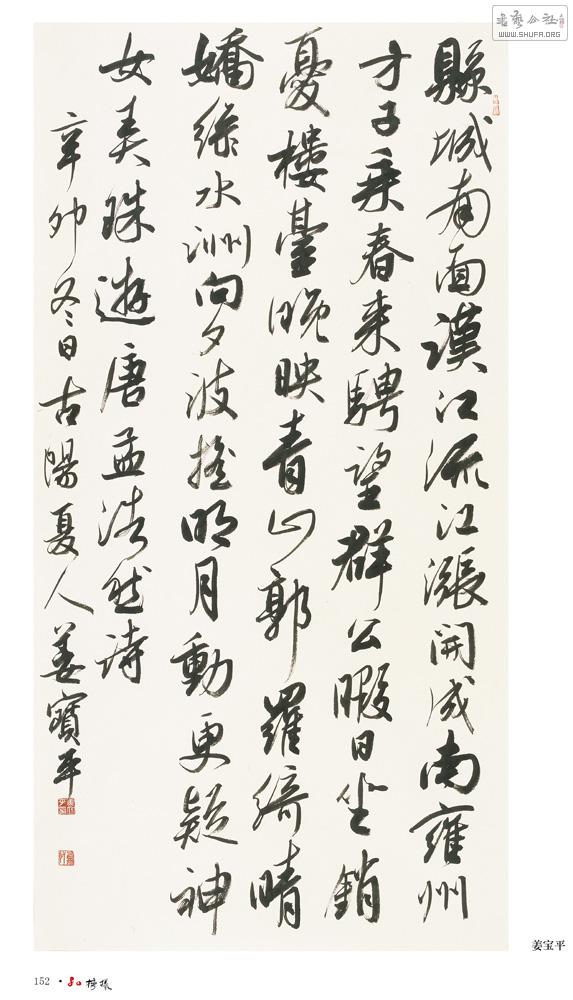 書藝公社
WWW.SHUFA.ORG
縣城南面漢江流江漲開成南雍州
才子乘春来騁望群公暇日坐銷
憂樓臺晚映青山郭羅綺晴
嬌綠水洲向夕波摇明月動更疑神
女弄珠遊唐孟浩然詩
辛卯冬日古陽夏人姜寶平
姜宝平
152